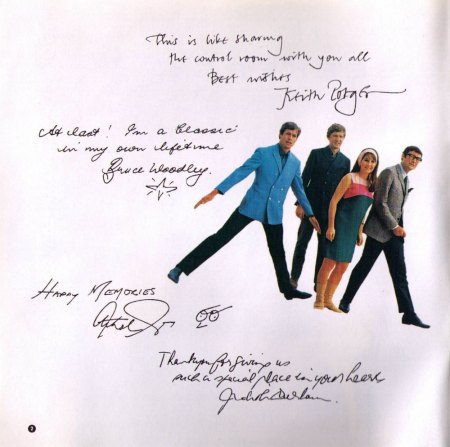 This is like sharing
the control room with you all
Best wishes
Keith Potger
At last! I'm a 'Classic'
in my own lifetime
Bruce Woodley.
HAPPY MEMORIES
Athol Guy
Thankyou for giving us
such a special place in your hearts
Judith Durham.
3